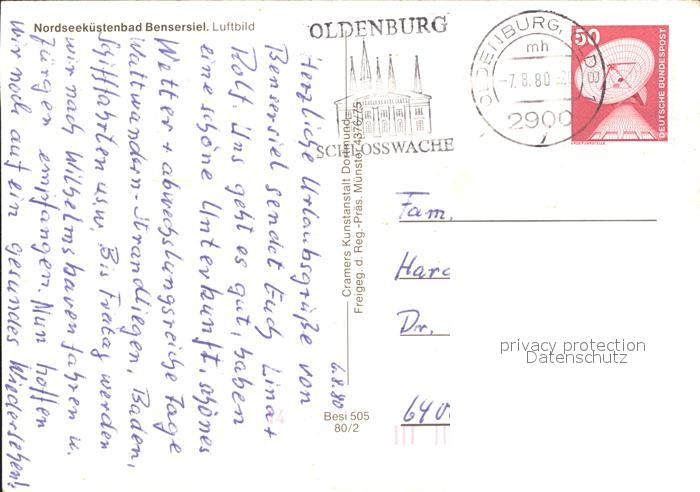 Nordseeküstenbad Bensersiel. Luftbild
Herzliche Urlaubsgrüße von
Bensersiel sendet Euch Lina+
Rolf. Uns geht es gut, haben
eine schöne Unterkunft, schönes
Wetter + abwechslungsreiche Tage
Wattwandern-Strandliegen, Baden,
Schifffahrten usw. Bis Freitag werden
wir nach Wilhelmshaven fahren u.
Jürgen empfangen. Nun hoffen
wir noch auf ein gesundes Wiedersehen!
6.8.80
Cramers Kunstanstalt Dortmund
Freigeg. d. Reg.-Präs. Münster 4376/75
Besi 505
80/2
OLDENBURG
SCHLOSSWACHE
OLDENBURG, OLDB 1
mh
-7.8.80
2900
50
DEUTSCHE BUNDESPOST
ERDEFUNKSTELLE
Fam.
Har
Dr.
640
privacy protection
Datenschutz